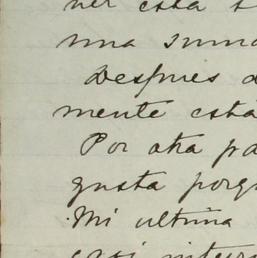 ner esta
una suma
Despues d
mente está
Por otra pa
gusta porqu
Mi ultima
casi intera